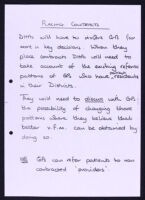 PLACING CONTRACTS
DHAs will have to involve GPs far
more in key decisions. When they
place contracts DHAs will need to
take account of the existing referral
patterns of GPs who have residents
in their Districts.
They will need to discuss with GPs
the possibility of changing these
patterns where they believe that
better v.f.m. can be obtained by
doing so.
NB GPs can refer patients to non
contracted providers